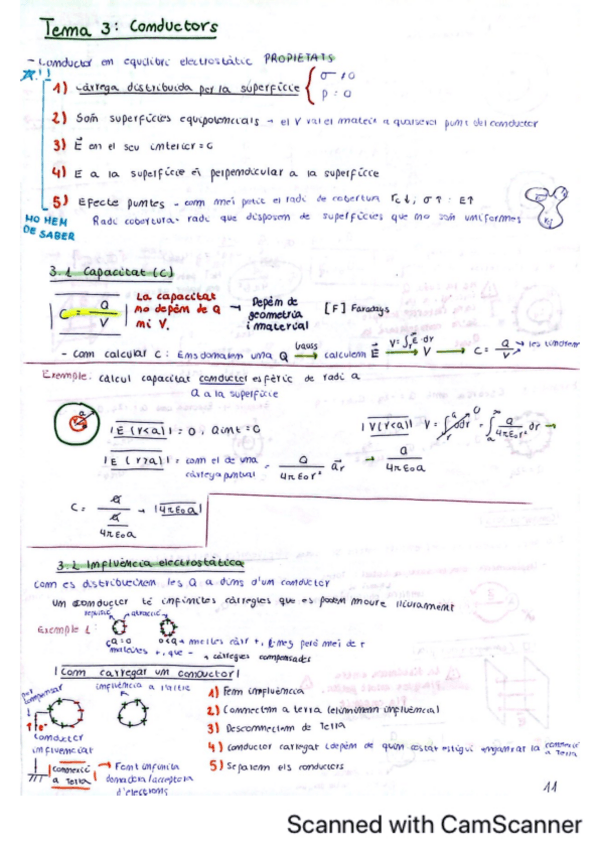 Tema 3: Conductors
- Conductor en equilibri electrostàtic PROPIETATS
1) Càrrega distribuida per la superfície { σ ≠ 0
ρ = 0
2) Són superfícies equipotencials → el V val el mateix a qualsevol punt del conductor
3) E⃗ en el seu interior = 0
4) E a la superfície és perpendicular a la superfície
5) Efecte puntes - com més petit el radi de cobertura rc↓, σ↑ : E↑
NO HEM
DE SABER
Radi cobertura - radi que disposem de superfícies que no són uniformes
3.1 Capacitat (C)
C = Q/V
La capacitat
no depèn de Q
ni V.
→ Depèn de
geometria
i material
[F] Faradays
- Com calcular C: Ens donaven una Q Gauss→ calculem E⃗ V=∫E⃗·dr→ V → C = Q/V
Exemple. càlcul capacitat conductor esfèric de radi a
Q a la superfície
|E (r<a)| = 0, Qint = 0
|V(r<a)| V = ∫ 0dr - ∫ Q/4πε₀r² dr →
|E (r>a)| = com el de una
càrrega puntual = Q/4πε₀r² a⃗r
→ Q/4πε₀a
C = Q / (Q/4πε₀a) → |4πε₀a|
3.2 Influència electrostàtica
Com es distribueixen les Q a dins d'un conductor
Un conductor té infinites càrregues que es poden moure lliurement
repulsió atracció
Exemple 1:
→ càrregues compensades
|Com carregar un conductor|
per
compensar
influència a l'altre
conductor
influenciat
1) Fem influència
2) Connectem a terra (eliminem influència)
3) Desconnectem de Terra
4) Conductor carregat (depèn de quin costat estigui enganxat la connexió
a terra
5) Separem els conductors
connexió
a Terra
→ Font infinita
donadora/acceptora
d'electrons
11
Scanned with CamScanner